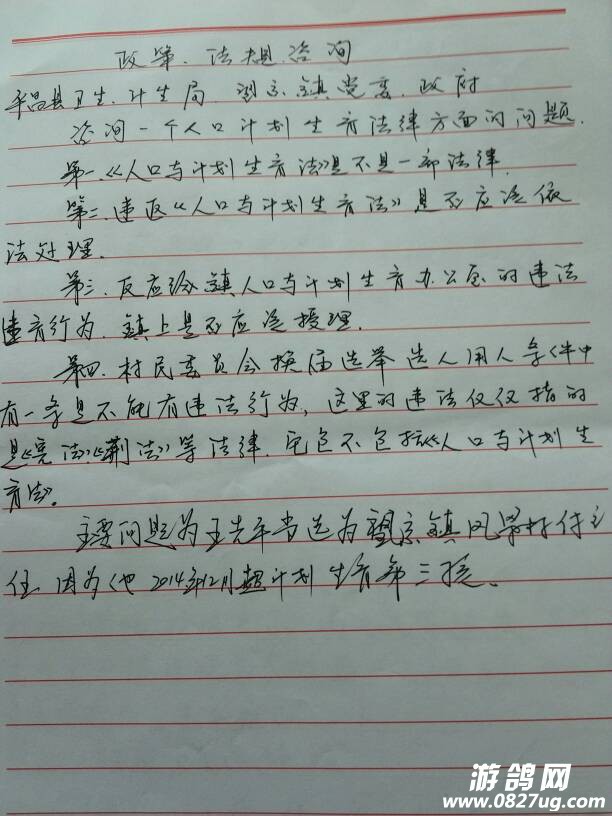 政策、法规咨询
平昌县卫生、计生局 望京镇党委、政府
咨询一个人口计划生育法律方面的问题.
第一、《人口与计划生育法》是不是一部法律.
第二、违反《人口与计划生育法》是否应该依
法处理.
第三、反应给镇人口与计划生育办公室的违法
违育行为、镇上是否应该授理.
第四、村民委员会换届选举选人用人条件中
有一条是不能有违法行为，这里的违法仅仅指的
是《宪法》《刑法》等法律.它包不包括《人口与计划生
育法》.
主要问题为王先年当选为望京镇风梁村付主
任.因为他2014年12月超计划生育第三孩.
游鸽网
www.0827ug.com